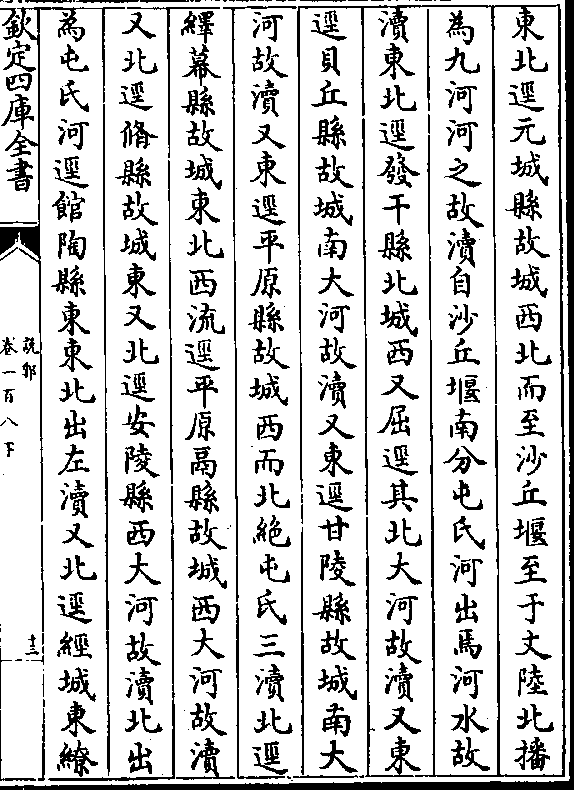 東北逕元城縣故城西北而至沙丘堰至于大陸北播
為九河河之故瀆自沙丘堰南分屯氏河出焉河水故
瀆東北逕發干縣北城西又屈逕其北大河故瀆又東
逕貝丘縣故城南大河故瀆又東逕甘陵縣故城南大
河故瀆又東逕平原縣故城西而北絶屯氏三瀆北逕
繹幕縣故城東北西流逕平原鬲縣故城西大河故瀆
又北逕脩縣故城東又北逕安陵縣西大河故瀆北出
為屯氏河逕館陶縣東東北出左瀆又北逕經城東繚
欽定四庫全書
說郛
卷一百八下
十三